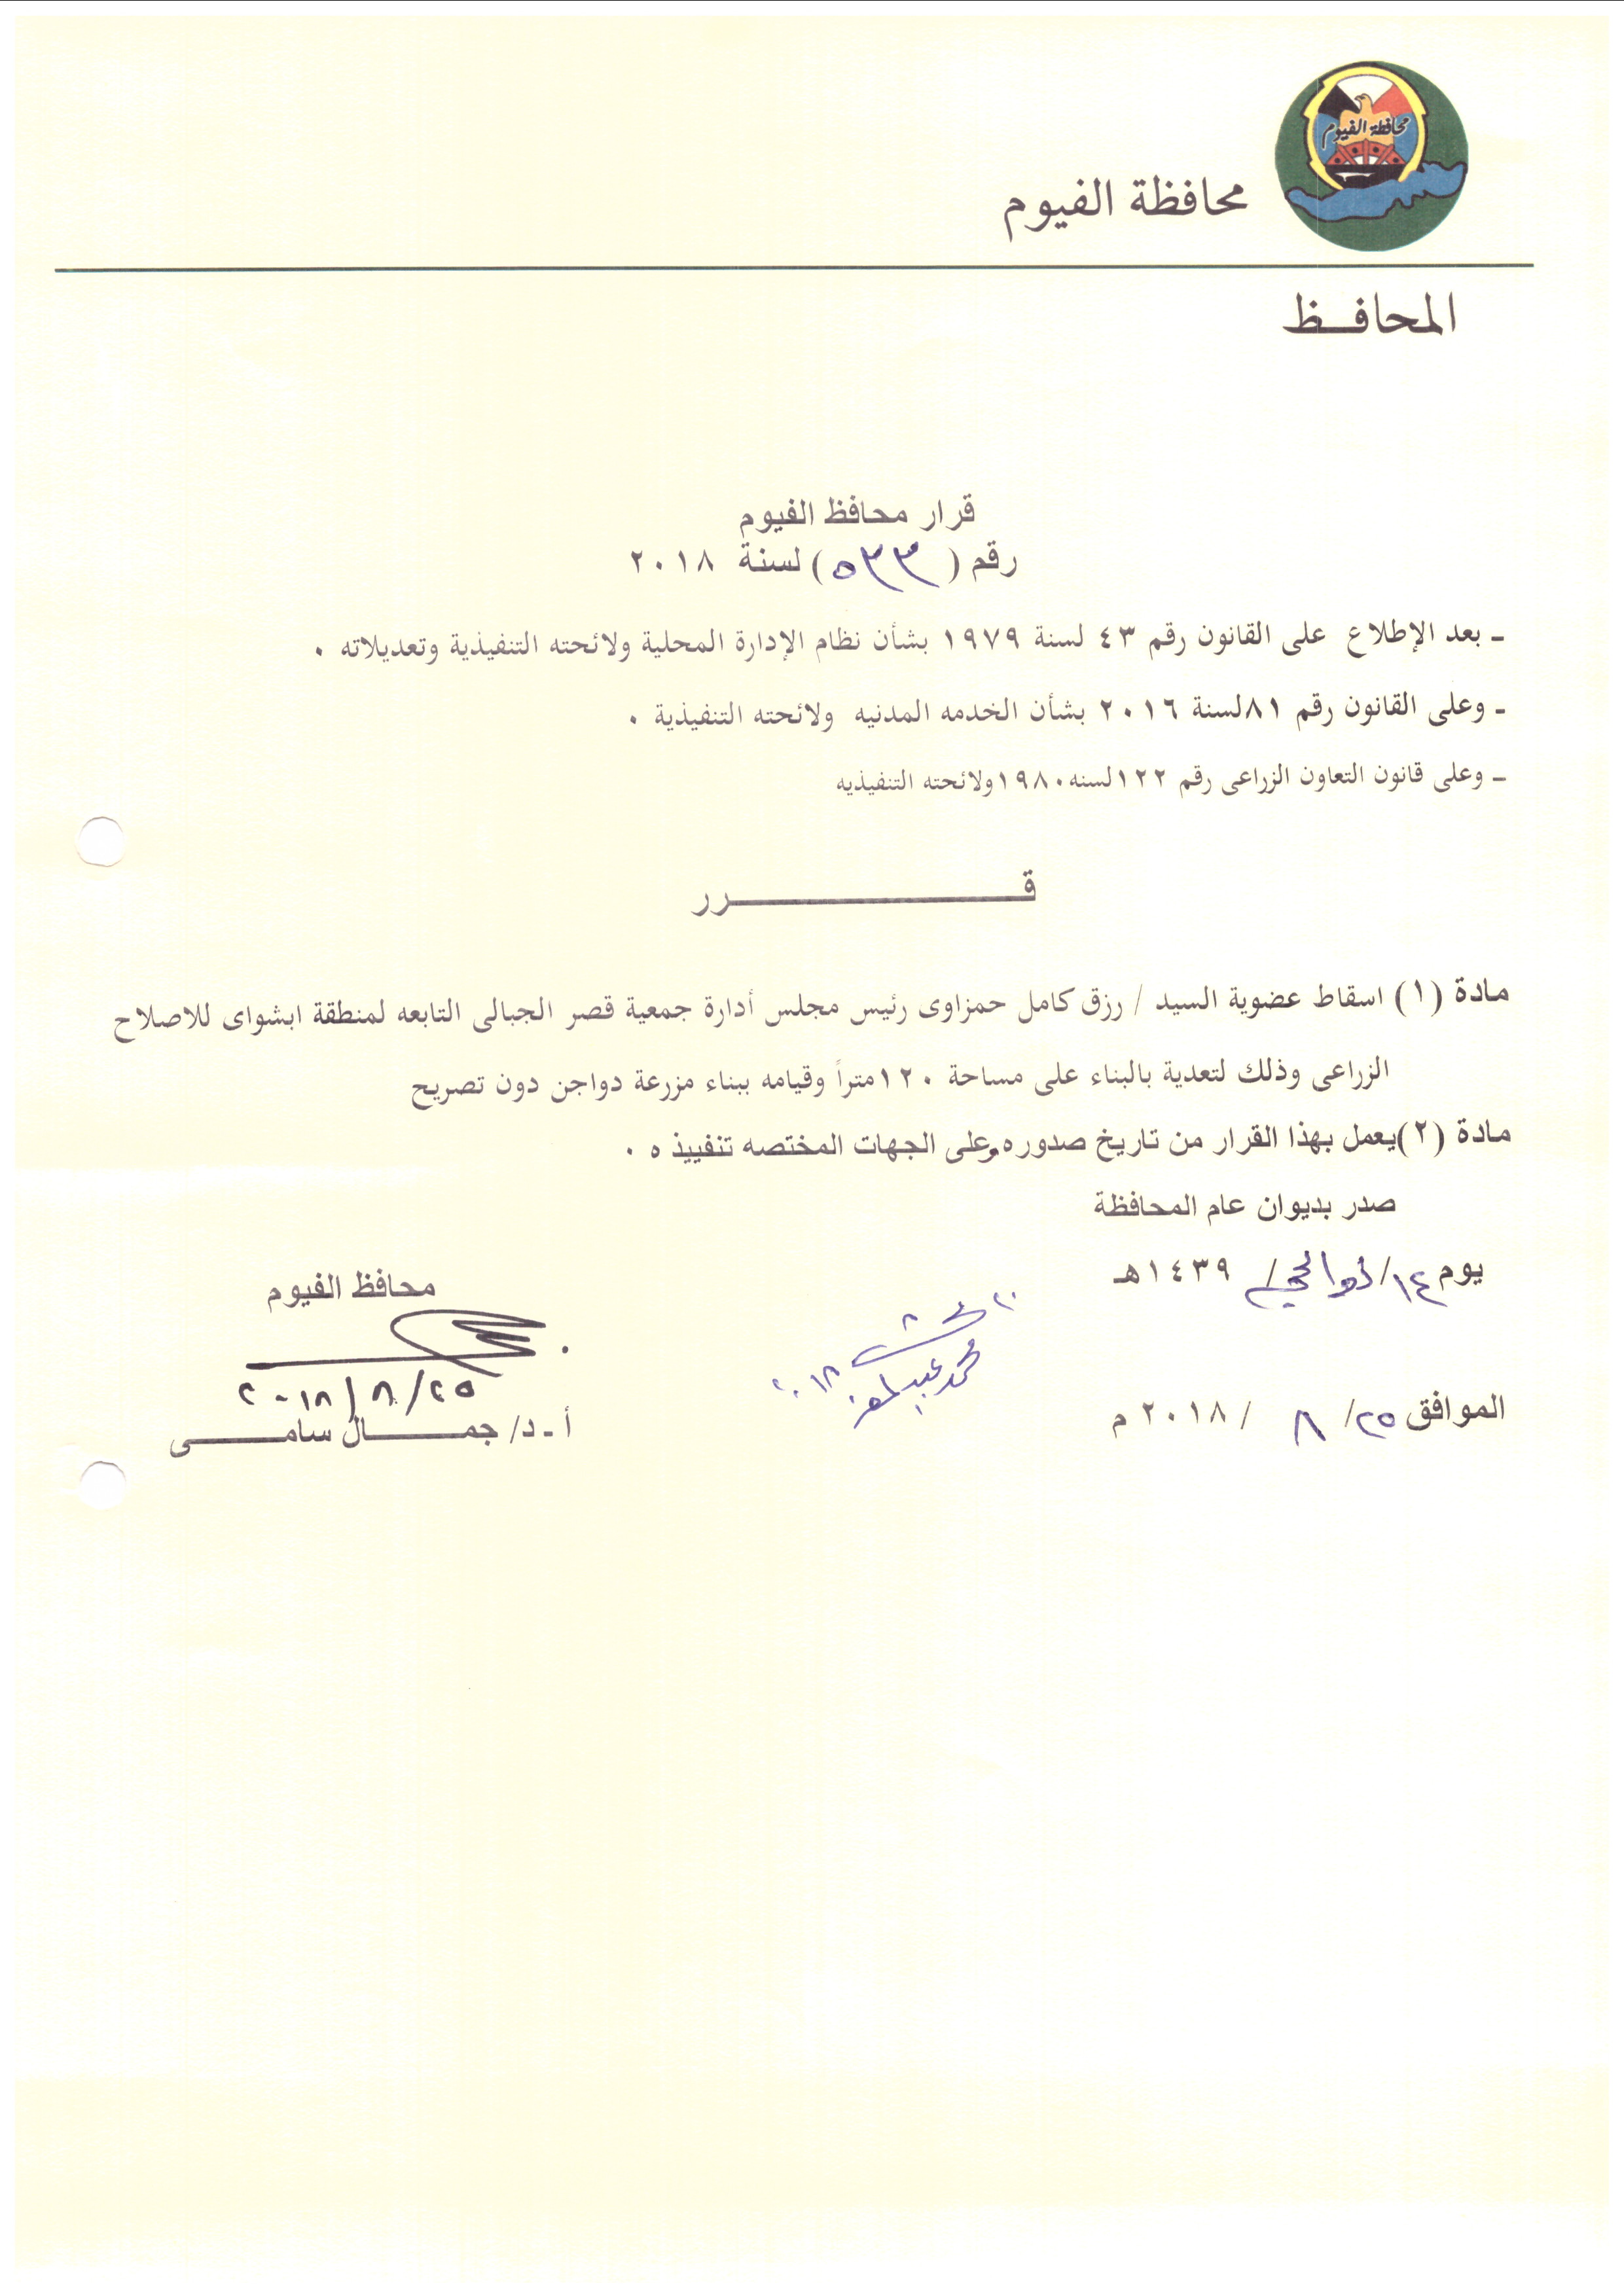 محافظة الفيوم
محافظة الفيوم
المحافـــظ
قرار محافظ الفيوم
رقم ( ٥٣٣ ) لسنة ٢٠١٨
ـ بعد الإطلاع على القانون رقم ٤٣ لسنة ١٩٧٩ بشأن نظام الإدارة المحلية ولائحته التنفيذية وتعديلاته ٠
ـ وعلى القانون رقم ٨١لسنة ٢٠١٦ بشأن الخدمه المدنيه ولائحته التنفيذية ٠
ـ وعلى قانون التعاون الزراعى رقم ١٢٢لسنه١٩٨٠ولائحته التنفيذيه
قـــــــــــــــــرر
مادة (١) اسقاط عضوية السيد / رزق كامل حمزاوى رئيس مجلس أدارة جمعية قصر الجبالى التابعه لمنطقة ابشواى للاصلاح
الزراعى وذلك لتعدية بالبناء على مساحة ١٢٠متراً وقيامه ببناء مزرعة دواجن دون تصريح
مادة (٢)يعمل بهذا القرار من تاريخ صدوره وعلى الجهات المختصه تنفييذ ه ٠
صدر بديوان عام المحافظة
يوم ١٤/ ذو الحجة/ ١٤٣٩هـ
الموافق ٢٥/ ٨ / ٢٠١٨ م
محمد عبد
٢٠١٨
محافظ الفيوم
٢٠١٨/٨/٢٥
أ ـ د/ جمـــــال سامـــــــى